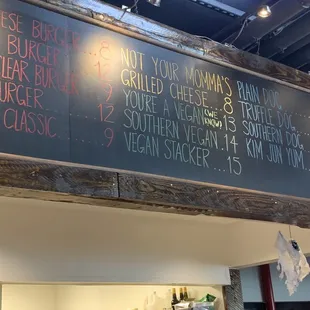 ESE BURGER
BURGER . 8
CLEAR BURGER
BURGER
CLASSIC
12
9
NOT YOUR MOMMA'S
GRILLED CHEESE . . 8
YOU'RE A VEGAN (WE KNOW) 13
SOUTHERN VEGAN . . 14
VEGAN STACKER . . . 15
PLAIN DOG
TRUFFLE DOG
SOUTHERN DOG
KIM JUN YUM